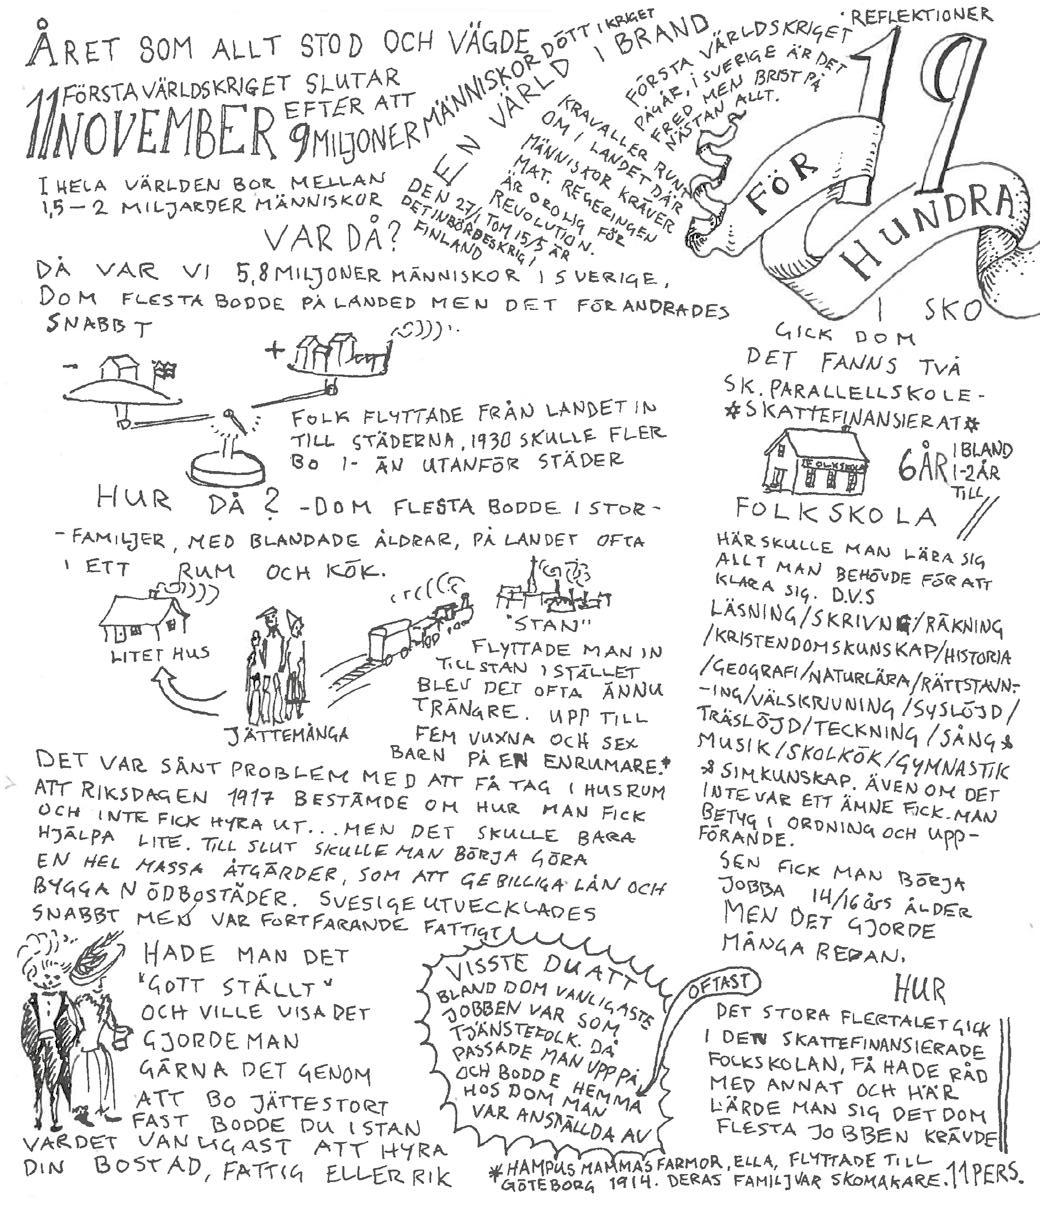 ÅRET SOM ALLT STOD OCH VÄGDE
11 NOVEMBER
FÖRSTA VÄRLDSKRIGET SLUTAR
EFTER ATT
9 MILJONER MÄNNISKOR DÖTT I KRIGET
EN VÄRLD I BRAND
FÖRSTA VÄRLDSKRIGET
PÅGÅR, I SVERIGE ÄR DET
FRED MEN BRIST PÅ
NÄSTAN ALLT.
KRAVALLER RUNT
OM I LANDET DÄR
MÄNNISKOR KRÄVER
MAT. REGERINGEN
ÄR OROLIG FÖR
REVOLUTION.
DEN 27/1 TOM 15/5 ÄR
DET INBÖRDESKRIG I
FINLAND
REFLEKTIONER
19
FÖR
HUNDRA
I HELA VÄRLDEN BOR MELLAN
1,5-2 MILJARDER MÄNNISKOR
VAR DÅ?
DÅ VAR VI 5,8 MILJONER MÄNNISKOR I SVERIGE,
DOM FLESTA BODDE PÅ LANDED MEN DET FÖRANDRADES
SNABBT
- +
FOLK FLYTTADE FRÅN LANDET IN
TILL STÄDERNA, 1930 SKULLE FLER
BO I- ÄN UTANFÖR STÄDER
HUR DÅ? -DOM FLESTA BODDE I STOR-
-FAMILJER, MED BLANDADE ÅLDRAR, PÅ LANDET OFTA
I ETT RUM OCH KÖK.
LITET HUS
JÄTTEMÅNGA
"STAN"
FLYTTADE MAN IN
TILL STAN ISTÄLLET
BLEV DET OFTA ÄNNU
TRÄNGRE. UPP TILL
FEM VUXNA OCH SEX
BARN PÅ EN ENRUMARE.*
DET VAR SÅNT PROBLEM MED ATT FÅ TAG I HUSRUM
ATT RIKSDAGEN 1917 BESTÄMDE OM HUR MAN FICK
OCH INTE FICK HYRA UT... MEN DET SKULLE BARA
HJÄLPA LITE. TILL SLUT SKULLE MAN BÖRJA GÖRA
EN HEL MASSA ÅTGÄRDER, SOM ATT GE BILLIGA LÅN OCH
BYGGA NÖDBOSTÄDER. SVESIGE UTVECKLADES
SNABBT MEN VAR FORTFARANDE FATTIGT
HADE MAN DET
"GOTT STÄLLT"
OCH VILLE VISA DET
GJORDE MAN
GÄRNA DET GENOM
ATT BO JÄTTESTORT
FAST BODDE DU I STAN
VAR DET VANLIGAST ATT HYRA
DIN BOSTAD, FATTIG ELLER RIK
VISSTE DU ATT
BLAND DOM VANLIGASTE
JOBBEN VAR SOM
TJÄNSTEFOLK. DÅ
PASSADE MAN UPP PÅ
OCH BODDE HEMMA
HOS DOM MAN
VAR ANSTÄLLDA AV
OFTAST
I SKO
GICK DOM
DET FANNS TVÅ
SK. PARALLELLSKOLE-
*SKATTEFINANSIERAT*
FOLKSKOLA
6 ÅR IBLAND
1-2 ÅR
TILL
FOLKSKOLA
HÄR SKULLE MAN LÄRA SIG
ALLT MAN BEHÖVDE FÖR ATT
KLARA SIG. D.V.S
LÄSNING/SKRIVNG/RÄKNING
/KRISTENDOMSKUNSKAP/HISTORIA
/GEOGRAFI/NATURLÄRA/RÄTTSTAVN-
-ING/VÄLSKRIVNING/SYSLÖJD/
TRÄSLÖJD/TECKNING/SÅNG &
MUSIK/SKOLKÖK/GYMNASTIK
& SIMKUNSKAP. ÄVEN OM DET
INTE VAR ETT ÄMNE FICK MAN
BETYG I ORDNING OCH UPP-
FÖRANDE.
SEN FICK MAN BÖRJA
JOBBA 14/16 ÅRS ÅLDER
MEN DET GJORDE
MÅNGA REDAN.
HUR
DET STORA FLERTALET GICK
I DEN SKATTEFINANSIERADE
FOLKSKOLAN, FÅ HADE RÅD
MED ANNAT OCH HÄR
LÄRDE MAN SIG DET DOM
FLESTA JOBBEN KRÄVDE
*HAMPUS MAMMAS FARMOR, ELLA, FLYTTADE TILL
GÖTEBORG 1914. DERAS FAMILJ VAR SKOMAKARE. 11 PERS.